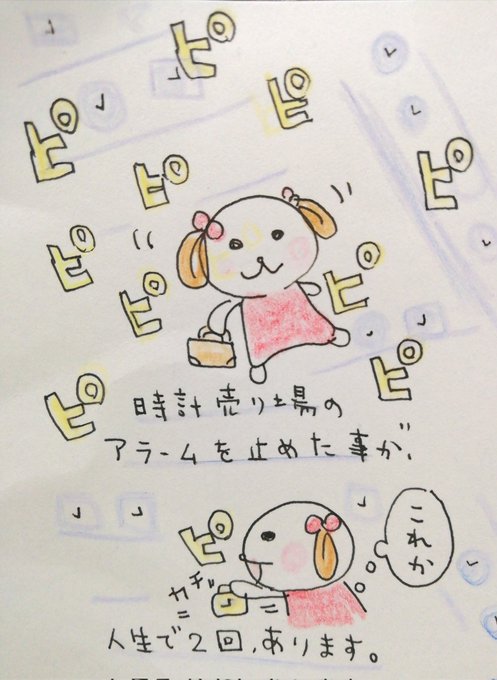 ピ
ピ
ピ
ピ
ピ
ピ
ピ
ピ
ピ
ピ
時計売り場の
アラームを止めた事が、
ピ
これか
カチッ
人生で2回、あります。